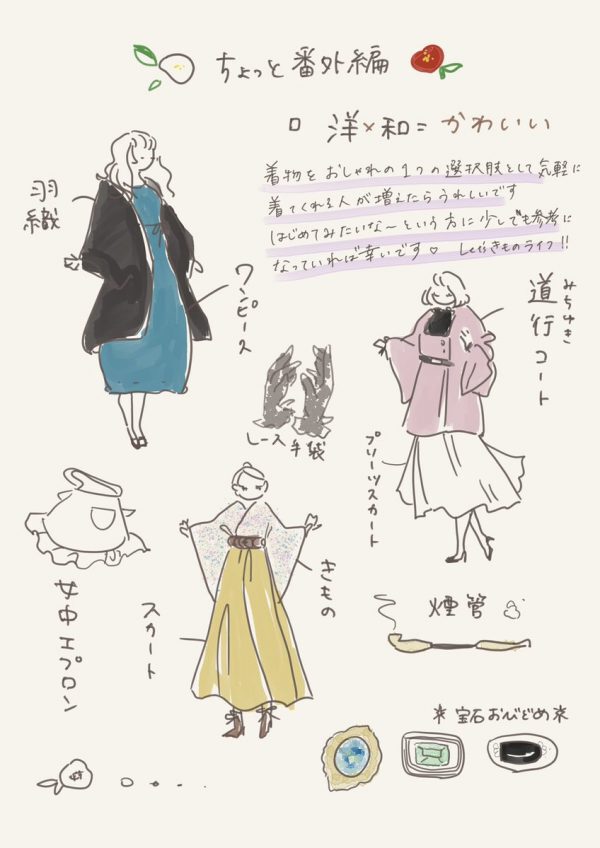 ちょっと番外編
洋×和=かわいい
着物をおしゃれの1つの選択肢として気軽に
着てくれる人が増えたらうれしいです
はじめてみたいな〜という方に少しでも参考に
なっていれば幸いです♡ Let'sきものライフ!!
羽織
ワンピース
みちゆき
道行コート
レース手袋
プリーツスカート
女中エプロン
きもの
スカート
煙管
*宝石おびどめ*